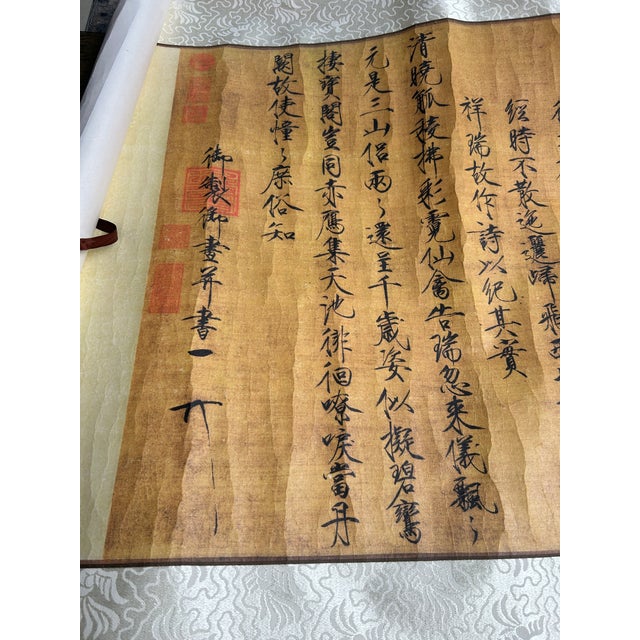 經時不散迤邐歸飛西
祥瑞故作詩以紀其實
清曉觚稜拂彩霓仙禽告瑞忽來儀飄〻
元是三山侶兩〻還呈千歲姿似擬碧鸞
棲寶閣豈同赤鴈集天池徘徊嘹唳當丹
闕故使憧〻庶俗知
御製御畫并書